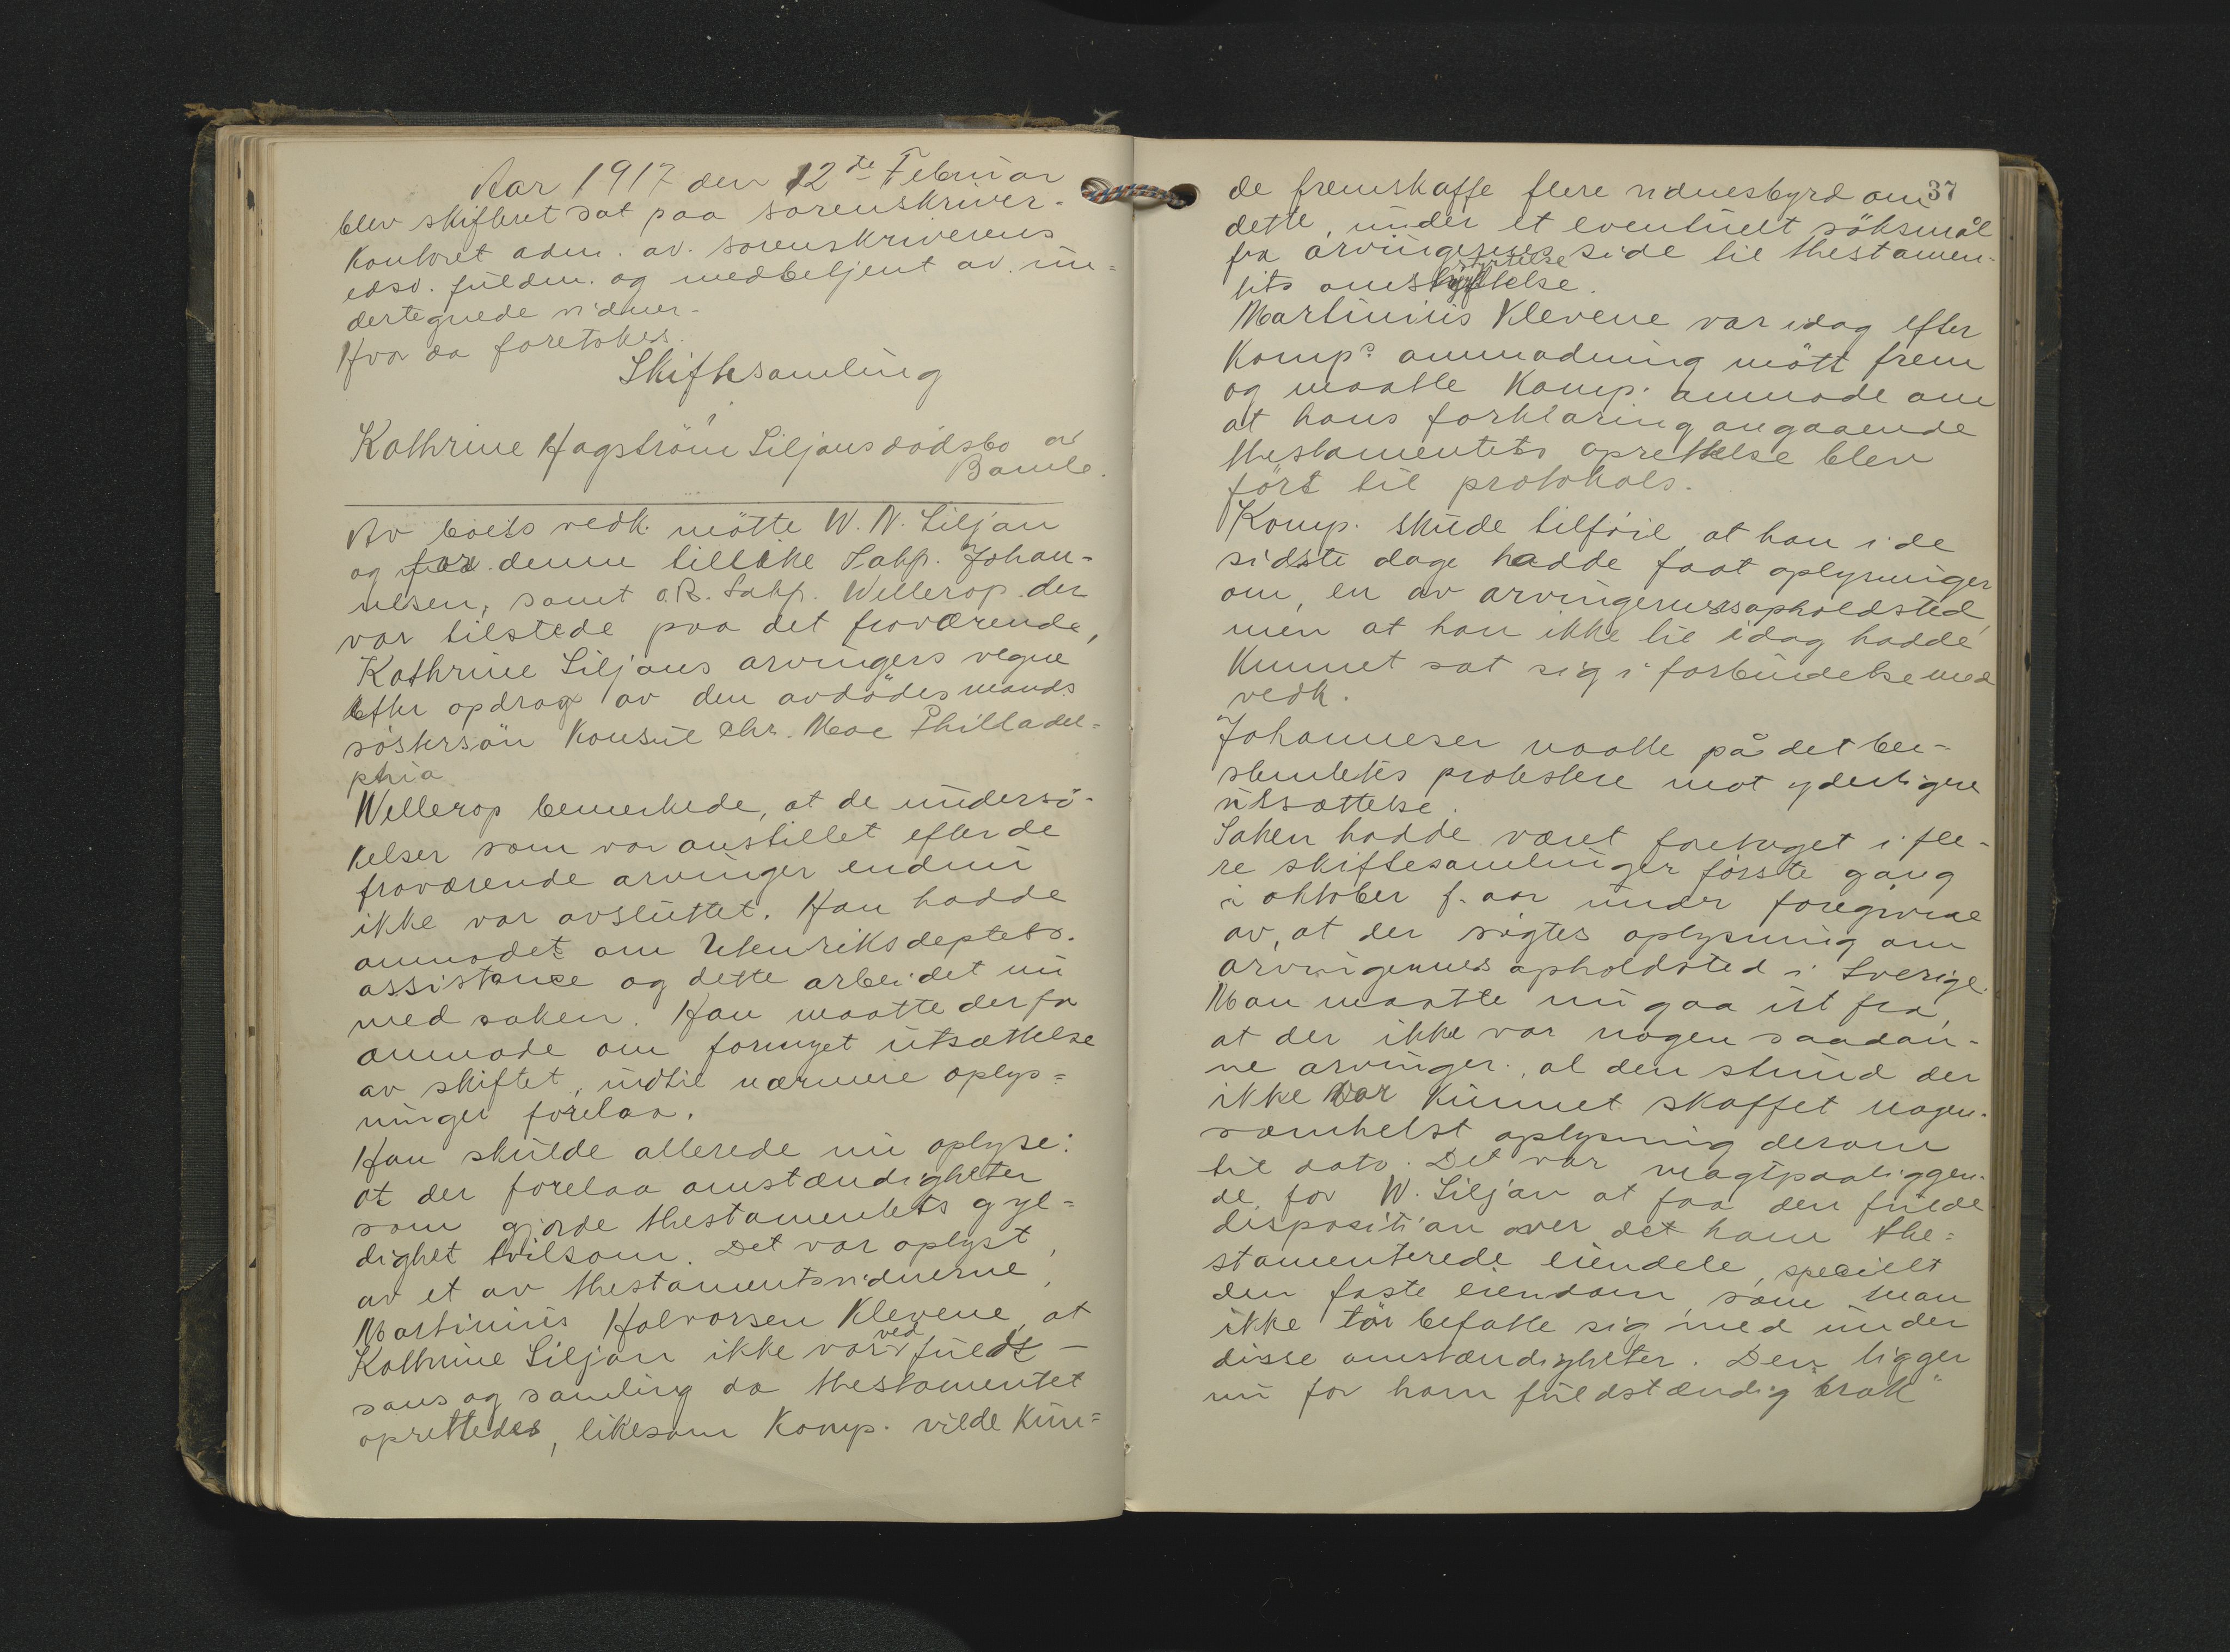 Aar 1917 den 12te Februar
blev skifteret sat paa sorenskriver-
kontoret adm. av. sorenskriverens
edsv. fuldm. og medbetjent av un-
dertegnede vidner.
Hvor da foretokes.
Skiftesamling
i
Kathrine Hagström Siljans dödsbo av
Bamle.
Av boets vedk. mötte W. N. Siljan
og for denne tillike Sakf. Johan-
nesen, samt o.R. Sakf. Wellerop der
var tilstede paa det fraværende,
Kathrine Siljans arvingers vegne
efter opdrag av den avdödes mands
söstersön Konsul Chr. Moe Philladel-
phia
Wellerop bemerkede, at de undersö-
kelser som var anstillet efter de
fraværende arvinger endnu
ikke var avsluttet. Han hadde
anmodet om Utenriksdeptets.
assistance og dette arbeidet nu
med saken. Han maatte derfor
anmode om fornyet utsættelse
av skiftet, indtil nærmere oplys-
ninger forelaa.
Han skulde allerede nu oplyse:
at der forelaa omstændigheter
som gjorde thestamentets gyl-
dighet tvilsom. Det var oplyst,
av et av thestamentsvidnerne,
Martinius Halvorsen Klevene, at
Kathrine Siljan ikke var ved fuld -
sans og samling da thestamentet
oprettedes, likesom Komp. vilde kun-
37
de fremskaffe flere vidnesbyrd om
dette, under et eventuelt söksmål
fra arvingernes side til thestamen-
tets omstyrtelse.
Martinius Klevene var idag efter
Komps. anmodning mött frem
og maatte Komp. anmode om
at hans forklaring angaaende
thestamentets oprettelse blev
fört til protokols.
Komp. skude tilföie, at han i de
sidste dage hadde faat oplysninger
om, en av arvingernes opholdsted,
men at han ikke til idag hadde
kunnet sat sig i forbindelse med
vedk.
Johannesen maatte på det be-
stemteste protestere mot yderligere
utsættelse.
Saken hadde været foretaget i fle-
re skiftesamlinger förste gang
i oktober f. aar under foregivende
av, at der sögtes oplysning om
arvingernes opholdsted i Sverige.
Man maatte nu gaa ut fra,
at der ikke var nogen saadan-
ne arvinger, al den stund der
ikke har kunnet skaffet nogen-
somhelst oplysning derom
til dato. Det var magtpaaliggen-
de for W. Siljan at faa den fulde
disposition over det ham the-
stamenterede eiendele, specielt
den faste eiendom, som man
ikke tör befatte sig med under
disse omstændigheter. Den ligger
nu for ham fuldstændig "brak"